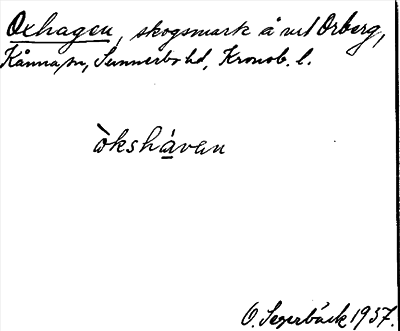 Oxhagen, skogsmark å vid Orberg,
Kånna sn, Sunnerbo hd, Kronob. l.
òkshávan
O. Segerbäck 1937.